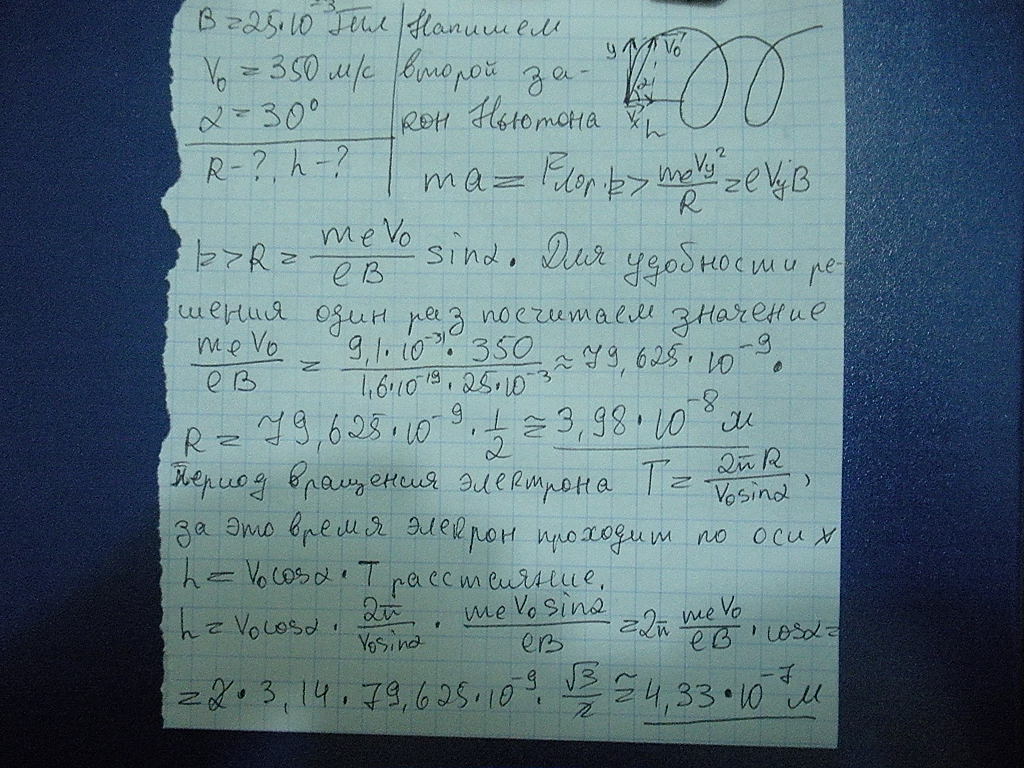 B = 25·10⁻³ Тл | Напишем
V₀ = 350 м/с | второй за-
α = 30° | кон Ньютона
y V₀ α Vx h
R - ?, h - ?
ma = Fлор. => meVy²/R = eVyB
=> R = meV₀/eB sinα. Для удобности ре-
шения один раз посчитаем значение
meV₀/eB = 9,1·10⁻³¹·350/1,6·10⁻¹⁹·25·10⁻³ ≈ 79,625·10⁻⁹.
R = 79,625·10⁻⁹·1/2 ≅ 3,98·10⁻⁸ м
Период вращения электрона T = 2πR/V₀sinα,
за это время элекрон проходит по оси x
h = V₀cosα·T расстояние.
h = V₀cosα · 2π/V₀sinα · meV₀sinα/eB = 2π meV₀/eB · cosα =
= 2·3,14·79,625·10⁻⁹·√3/2 ≅ 4,33·10⁻⁷ м